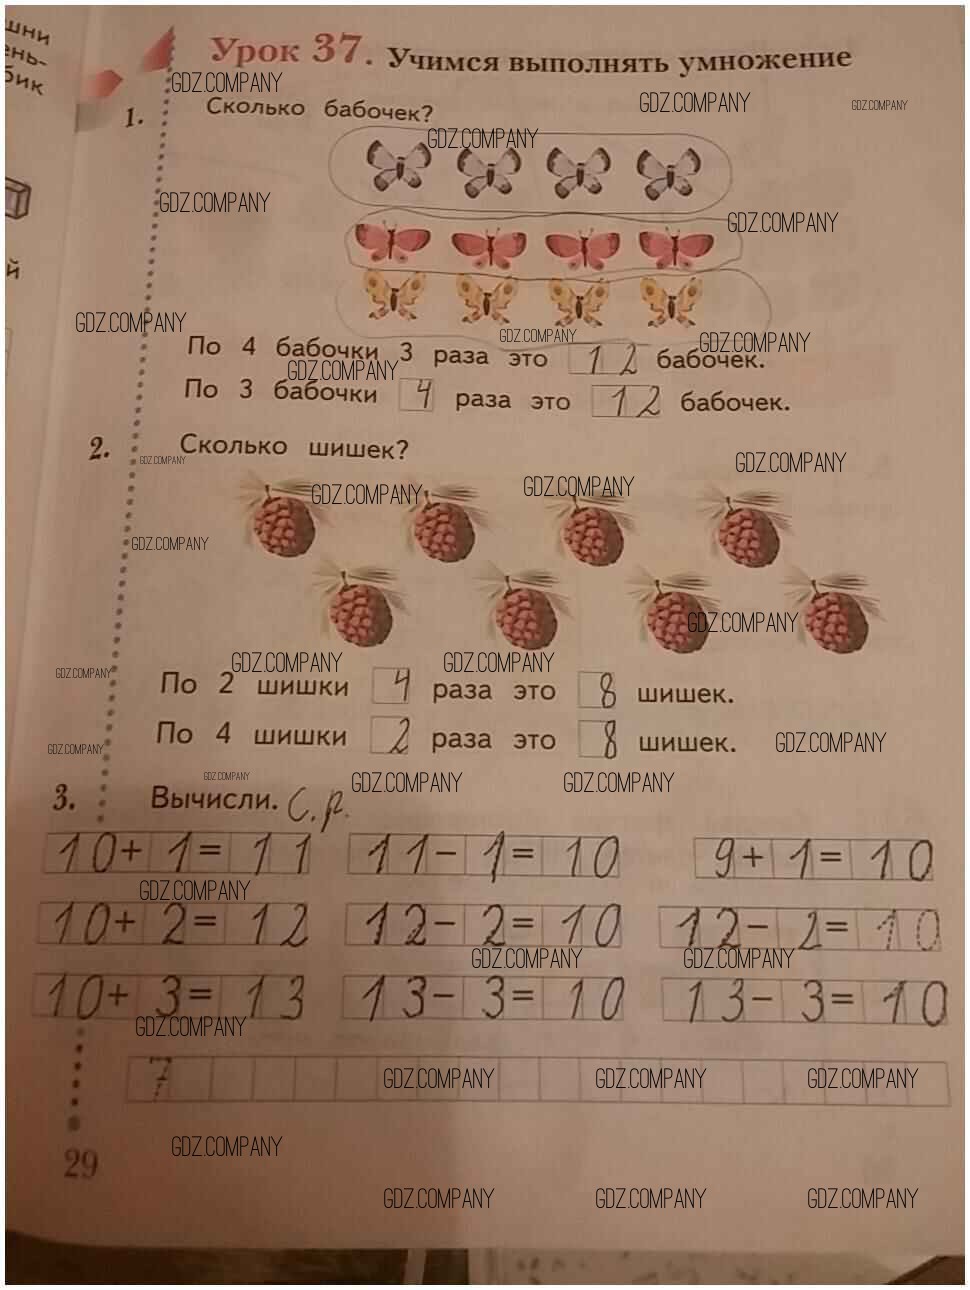 шни
ень-
бик
й
Урок 37. Учимся выполнять умножение
GDZ.COMPANY
GDZ.COMPANY GDZ.COMPANY
1. Сколько бабочек?
GDZ.COMPANY
GDZ.COMPANY
GDZ.COMPANY
GDZ.COMPANY
GDZ.COMPANY GDZ.COMPANY
По 4 бабочки 3 раза это 12 бабочек.
GDZ.COMPANY
По 3 бабочки 4 раза это 12 бабочек.
2. Сколько шишек?
GDZ.COMPANY GDZ.COMPANY
GDZ.COMPANY GDZ.COMPANY
GDZ.COMPANY
GDZ.COMPANY
GDZ.COMPANY GDZ.COMPANY GDZ.COMPANY
По 2 шишки 4 раза это 8 шишек.
По 4 шишки 2 раза это 8 шишек.
GDZ.COMPANY GDZ.COMPANY
GDZ.COMPANY GDZ.COMPANY GDZ.COMPANY
3. Вычисли. с.р.
10+1=11 11-1=10 9+1=10
GDZ.COMPANY
10+2=12 12-2=10 12-2=10
GDZ.COMPANY GDZ.COMPANY
10+3=13 13-3=10 13-3=10
GDZ.COMPANY
7
GDZ.COMPANY GDZ.COMPANY GDZ.COMPANY
GDZ.COMPANY
29
GDZ.COMPANY GDZ.COMPANY GDZ.COMPANY